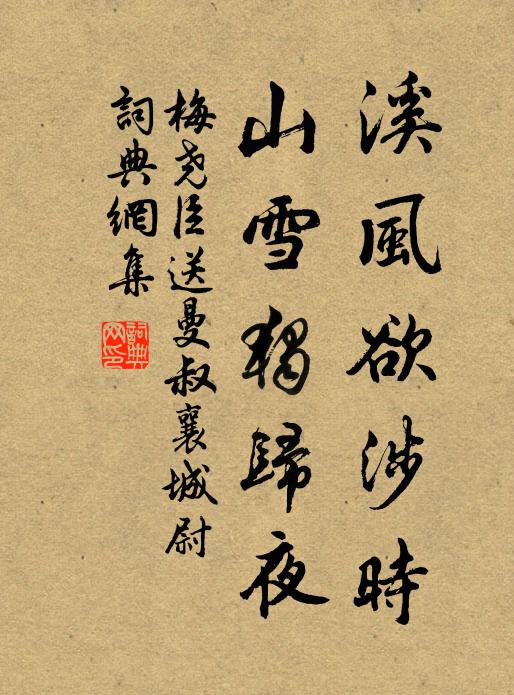 溪風欲涉時
山雪獨歸夜
梅尧臣送曼叔襄城尉
詞典網集
詞典
网印